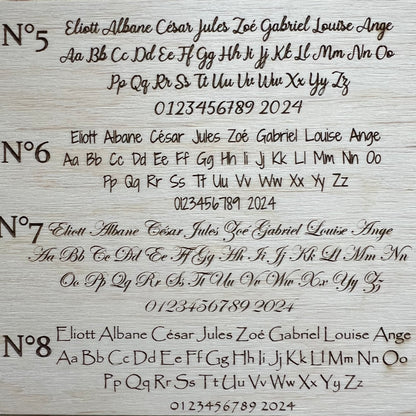 N°5 Eliott Albane César Jules Zoé Gabriel Louise Ange
Aa Bb Cc Dd Ee Ff Gg Hh Ii Jj Kk Ll Mm Nn Oo
Pp Qq Rr Ss Tt Uu Vv Ww Xx Yy Zz
0123456789 2024
N°6 Eliott Albane César Jules Zoé Gabriel Louise Ange
Aa Bb Cc Dd Ee Ff Gg Hh Ii Jj Kk Ll Mm Nn Oo
Pp Qq Rr Ss Tt Uu Vv Ww Xx Yy Zz
0123456789 2024
N°7 Eliott Albane César Jules Zoé Gabriel Louise Ange
Aa Bb Cc Dd Ee Ff Gg Hh Ii Jj Kk Ll Mm Nn
Oo Pp Qq Rr Ss Tt Uu Vv Ww Xx Yy Zz
0123456789 2024
N°8 Eliott Albane César Jules Zoé Gabriel Louise Ange
Aa Bb Cc Dd Ee Ff Gg Hh Ii Jj Kk Ll Mm Nn Oo
Pp Qq Rr Ss Tt Uu Vv Ww Xx Yy Zz
0123456789 2024